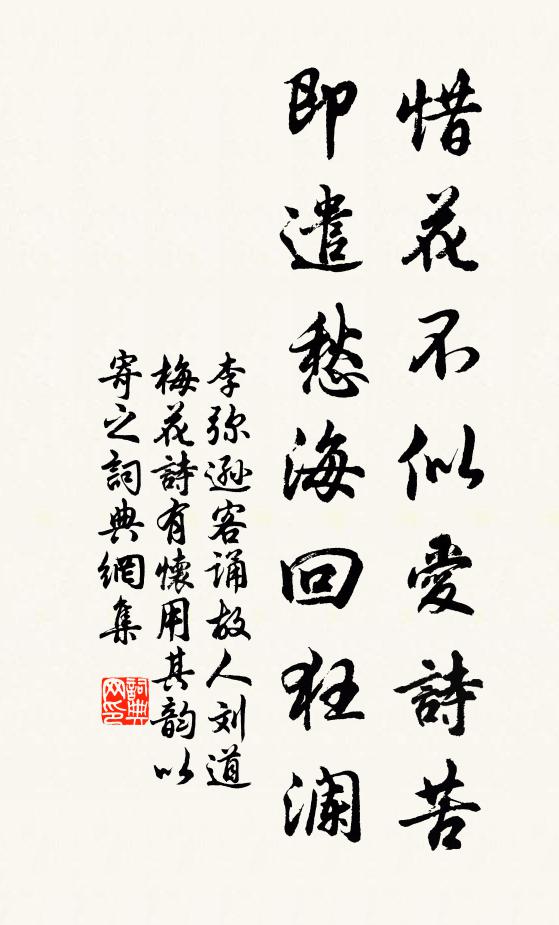 惜花不似愛詩苦
即遣愁海回狂澜
李弥遜客誦故人刘道
梅花詩有懷用其韵以
寄之詞典網集
詞典网印